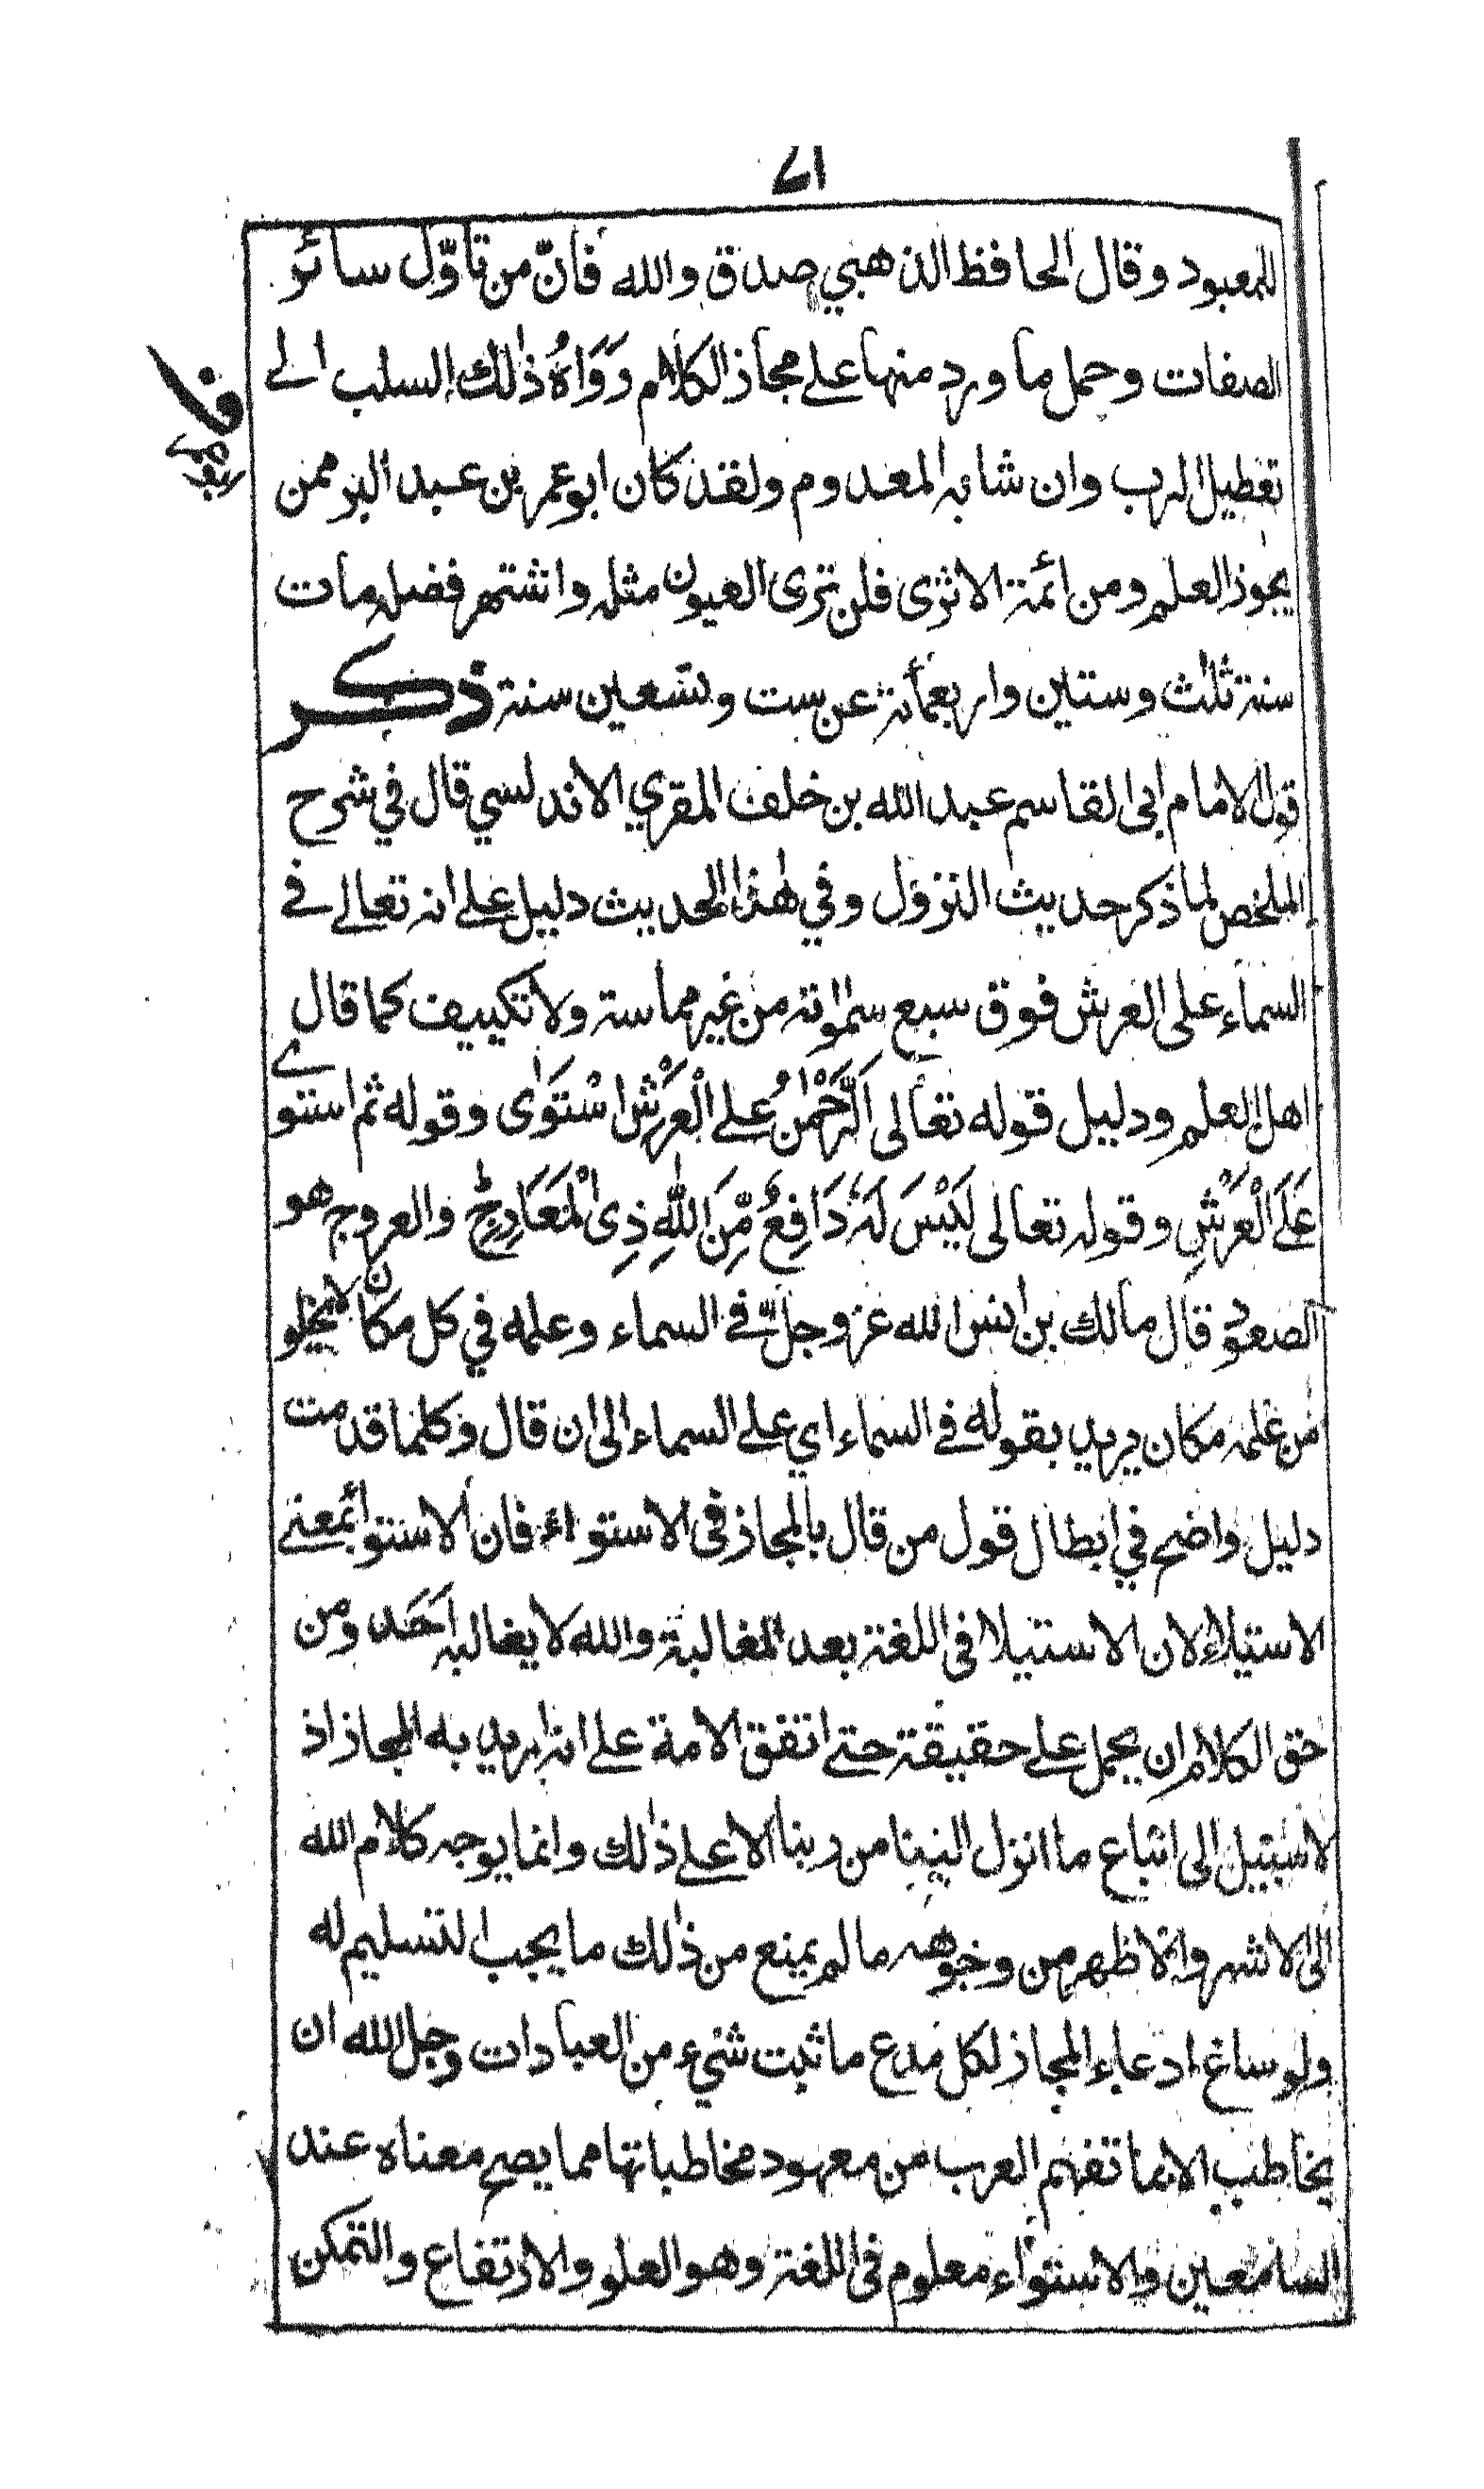 ٧١
للمعبود وقال الحافظ الذهبي صدق والله فانّ من تأوّل سائر
الصفات وحمل ما ورد منها على مجاز الكلام رَوَاهُ ذٰلك السلب الى
تعطيل الرب وان شابه المعدوم ولقد كان ابو عمر بن عبد البر ممن
يجوز العلم ومن ائمة الاثرى فلن ترى العيون مثله واشتهر فضله مات
سنة ثلٰث وستين واربعمائة عن ست وتسعين سنة ذكر
قول الامام ابى القاسم عبد الله بن خلف المقري الاندلسي قال في شرح
الملخص لما ذكر حديث النزول وفي هٰذا الحديث دليل على انه تعالى فى
السماء على العرش فوق سبع سمٰواته من غير مماسة ولا تكييف كما قال
اهل العلم ودليل قوله تعالى اَلرَّحْمٰنُ على الْعَرْشِ اسْتَوٰى وقوله ثم استوى
عَلَى الْعَرْشِ وقوله تعالى لَيْسَ لَهٗ دَافِعٌ مِّنَ اللّٰهِ ذِى الْمَعَارِجِ والعروج هو
الصعود قال مالك بن انس الله عز وجلّ فى السماء وعلمه في كل مكان لا يخلو
من علمه مكان يريد بقوله فى السماء اي على السماء الى ان قال وكلما قدمت
دليل واضح في ابطال قول من قال بالمجاز فى الاستواء فان الاستوا بمعنى
الاستيلاء لان الاستيلا فى اللغة بعد المغالبة والله لا يغالبه اَحَد ومن
حق الكلام ان يحمل على حقيقة حتى اتفق الامة على انه اريد به المجاز اذ
لا سبيل الى اتباع ما انزل الينا من ربنا الا على ذٰلك وانما يوجه كلام الله
الى الاشهر والاظهر من وجوهه ما لم يمنع من ذٰلك ما يجب التسليم له
ولو ساغ ادعاء المجاز لكل مدع ما ثبت شيء من العبادات وجل الله ان
يخاطب الا بما تفهم العرب من معهود مخاطباتها مما يصح معناه عند
السامعين والاستواء معلوم فى اللغة وهو العلو والارتفاع والتمكن